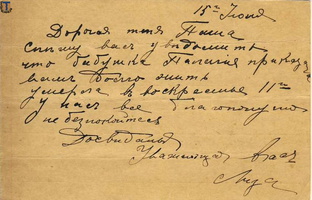 15го Июня
Дорогая тетя Паша
спешу вас уведомить
что бабушка Наталия приказала
вам долго жить
умерла в воскресенье 11го
у нас все благополучно
не безпокойтесь
Досвиданья
Уважающая вас
Лиза